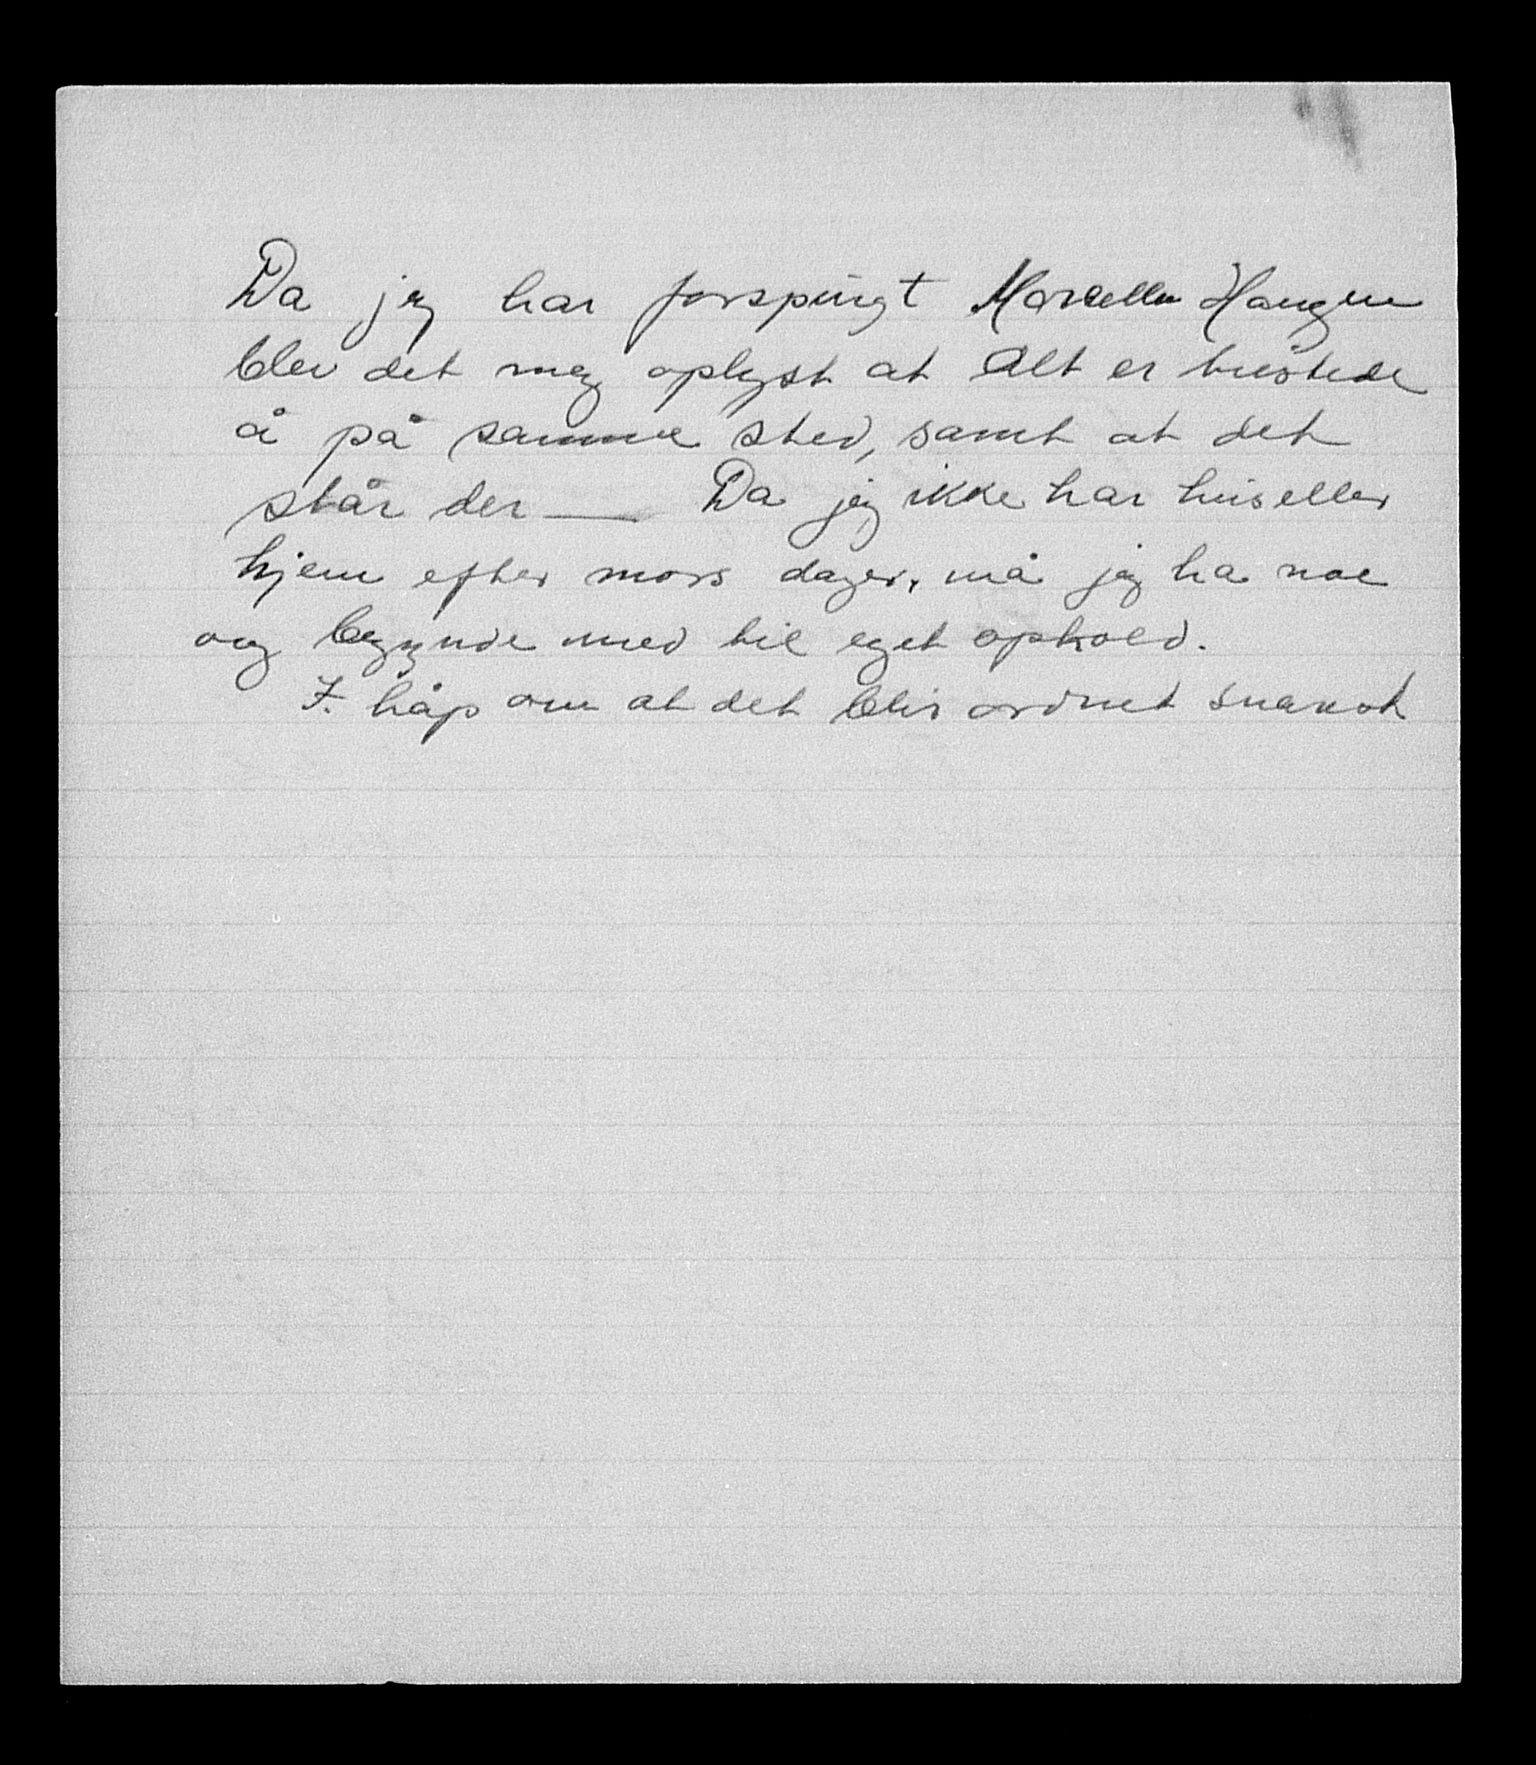 Da jeg har forspurgt Marcella Haugen
blev det meg oplyst at Alt er
å på samme sted, samt at det
står der — Da jeg ikke har hus eller
hjem efter mors dager, må jeg ha noe
og begynde med til eget ophold.
I. håp om at det blir ordnet snarest